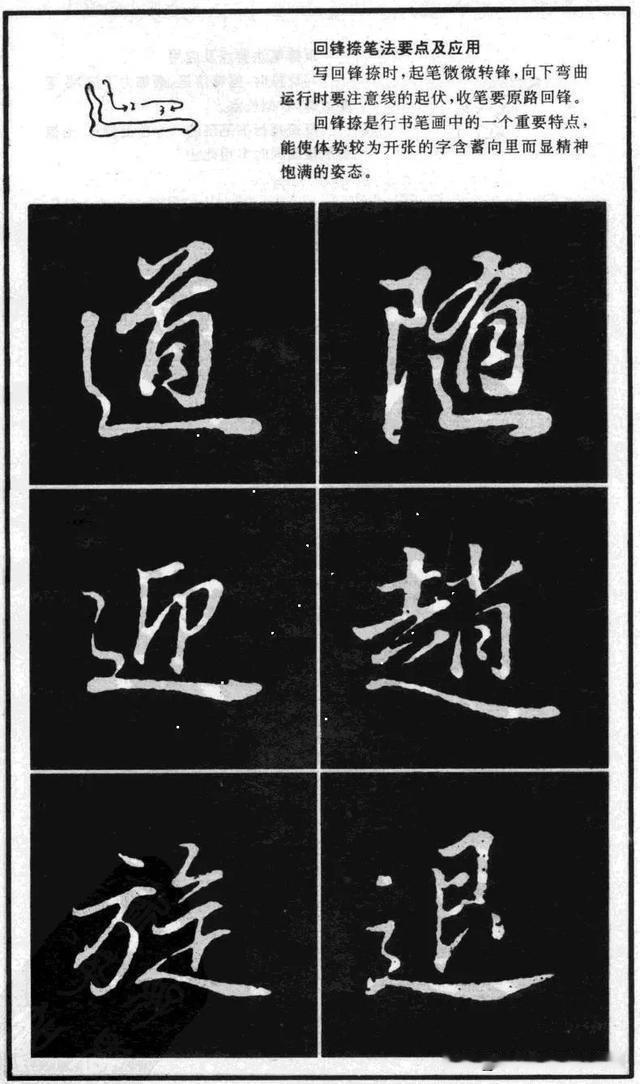 回锋捺笔法要点及应用
写回锋捺时，起笔微微转锋，向下弯曲
运行时要注意线的起伏，收笔要原路回锋。
回锋捺是行书笔画中的一个重要特点，
能使体势较为开张的字含蓄向里而显精神
饱满的姿态。
道 随
迎 趙
旋 退